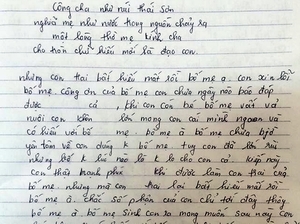 Công cha như núi thái Sơn
nghĩa mẹ như nước trong nguồn chảy ra
một lòng thờ mẹ kính cha
cho tròn chữ hiếu mới là đạo con.
những con trai bất hiếu mất rồi bố mẹ ạ. con xin lỗi
bố mẹ. công ơn của bố mẹ con chưa ngày nào báo đáp
được cả, khi con còn bé bố mẹ vất vả
nuôi con khôn lớn mong con cái mình ngoan và
có hiếu với bố mẹ. bố mẹ à bố mẹ chưa bao giờ
yên tâm về con đúng k bố mẹ. tuy con đã lớn rồi
những bố k lúc nào là k lo cho con cả. kiếp này
con thấy hạnh phúc khi được làm con trai của
bố mẹ. nhưng mà con trai lại bất hiếu mất rồi
bố mẹ à. chắc số phận của con chỉ tới đây thôi
bố mẹ ạ. bố mẹ sinh con ra mong muốn sau này con